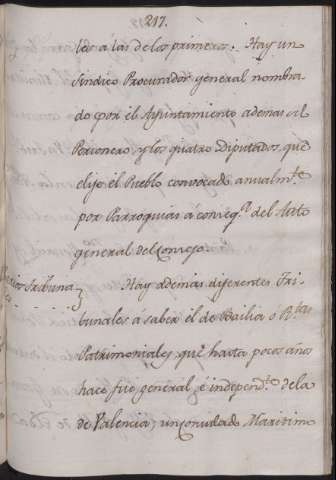 217.
les a las de los primeros. Hay un
Sindico Procurador general nombra-
do por el Ayuntamiento ademas del
Personero, y los quatro Diputados que
elije el Pueblo convocado anualm.te
por Parroquias á conseq.a del Auto
general del Consejo.
Tribuna
Hay ademas diferentes Tri-
bunales á saber el de Bailia o R.tas
Patrimoniales, que hasta pocos años
hace fue general, é independ.te de la
de Valencia; un Consulado Maritimo